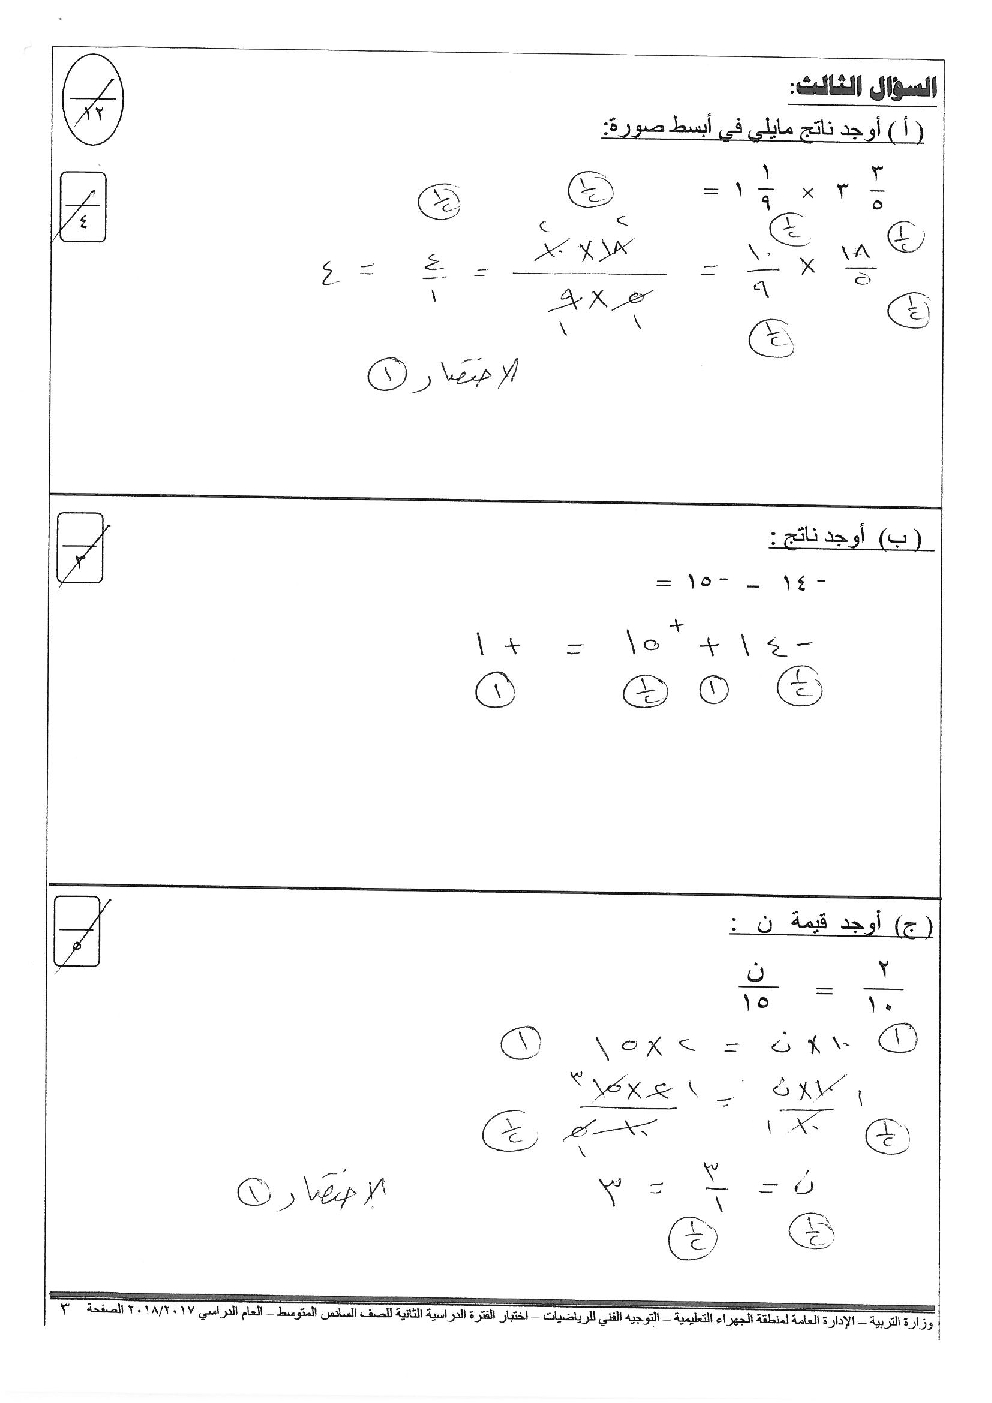 السؤال الثالث:
١٢
( أ ) أوجد ناتج مايلي في أبسط صورة:
٤
٣ ٣/٥ × ١ ١/٩ =
١/٢ ١/٢ ١/٢ ١/٢
١٨/٥ × ١٠/٩ = ١٨ × ١٠ / ٥ × ٩ = ٤/١ = ٤
٢ ٢
١ ١
١/٢ ١/٢
الاختصار ١
( ب ) أوجد ناتج :
٣
-١٤ – -١٥ =
-١٤ + +١٥ = +١
١/٢ ١ ١/٢ ١
( ج ) أوجد قيمة ن :
٥
٢/١٠ = ن/١٥
١ ١٠ × ن = ٢ × ١٥ ١
١٠ × ن / ١٠ = ٢ × ١٥ / ١٠
١ ١ ١ ٣ ٥ ١
١/٢ ١/٢
ن = ٣/١ = ٣
١/٢ ١/٢
الاختصار ١
وزارة التربية – الإدارة العامة لمنطقة الجهراء التعليمية – التوجيه الفني للرياضيات – اختبار الفترة الدراسية الثانية للصف السادس المتوسط – العام الدراسي ٢٠١٨/٢٠١٧ الصفحة ٣